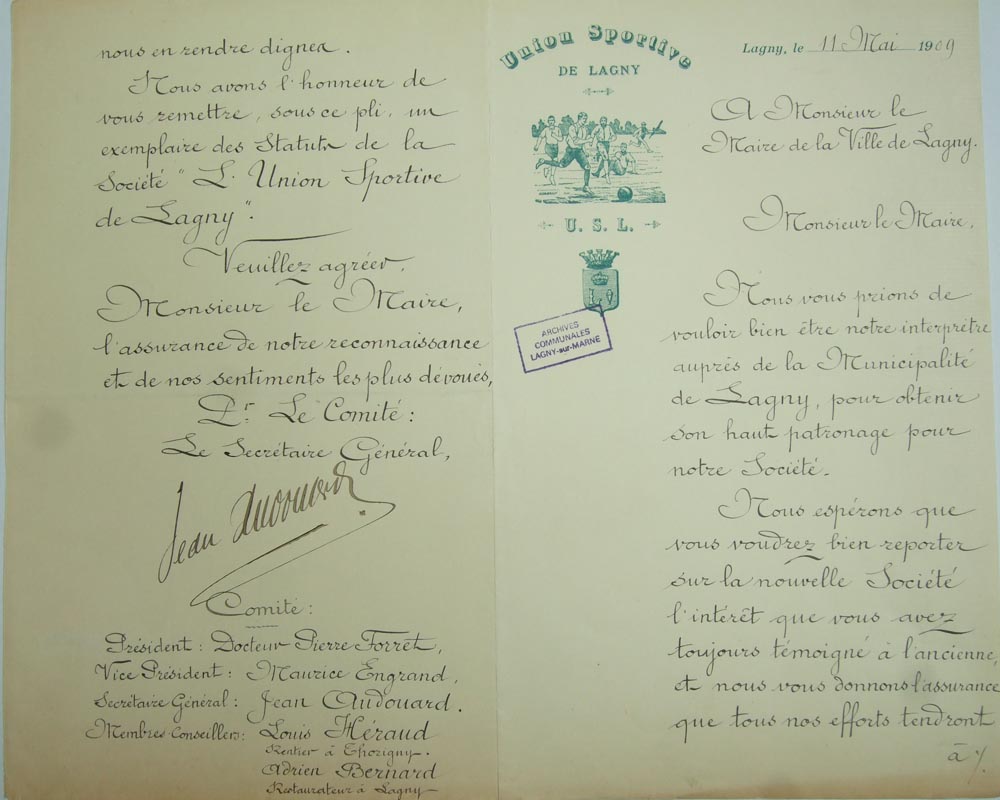 Union Sportive
DE LAGNY
U. S. L.
ARCHIVES
COMMUNALES
LAGNY-sur-MARNE
Lagny, le 11 Mai 1909
A Monsieur le
Maire de la Ville de Lagny.
Monsieur le Maire,
Nous vous prions de
vouloir bien être notre interprète
auprès de la Municipalité
de Lagny, pour obtenir
son haut patronage pour
notre Société.
Nous espérons que
vous voudrez bien reporter
sur la nouvelle Société
l'intérêt que vous avez
toujours témoigné à l'ancienne,
et nous vous donnons l'assurance
que tous nos efforts tendront
à
nous en rendre dignes.
Nous avons l'honneur de
vous remettre, sous ce pli, un
exemplaire des Statuts de la
Société "L'Union Sportive
de Lagny".
Veuillez agréer,
Monsieur le Maire,
l'assurance de notre reconnaissance
et de nos sentiments les plus dévoués,
Pr Le Comité:
Le Secrétaire Général,
Jean Audouard
Comité:
Président: Docteur Pierre Forrêt,
Vice Président: Maurice Engrand,
Secrétaire Général: Jean Audouard.
Membres Conseillers: Louis Héraud
Rentier à Thorigny.
Adrien Bernard
Restaurateur à Lagny